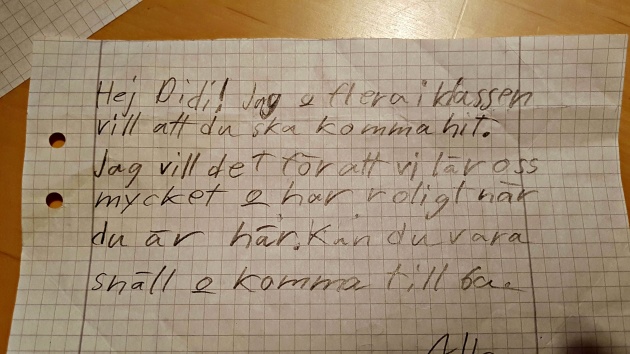 Hej Didi! Jag o flera i klassen
vill att du ska komma hit.
Jag vill det för att vi lär oss
mycket o har roligt när
du är här. Kan du vara
snäll o komma till 6a.